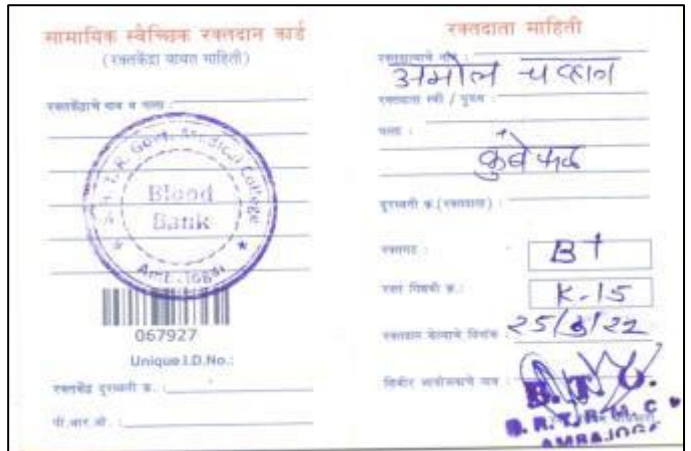 सामायिक स्वैच्छिक रक्तदान कार्ड
(रक्तकेंद्रा बाबत माहिती)
रक्तकेंद्राचे नाव व पत्ता :
S.R.T.R. Govt. Medical College
Blood
Bank
067927
Unique I.D.No.:
रक्तकेंद्र दुरध्वनी क्र. :
पी.आर.ओ. :
रक्तदाता माहिती
रक्तदात्याचे नाव :
अमोल चव्हाण
रक्तदाता स्त्री / पुरुष :
पत्ता :
कुंबेफळ
दुरध्वनी क्र.(रक्तदाता) :
रक्तगट :
B+
रक्त पिशवी क्र.:
K-15
रक्तदान केल्याचे दिनांक
शिबीर आयोजकाचे नाव :
B.T.O.